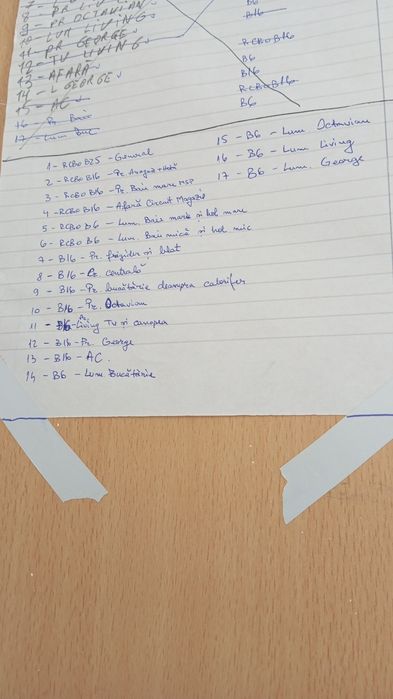 8 - PR LIV
9 - PR OCTAVIAN
10 - LUM LIVING
11 - PR GEORGE
12 - TV LIVING
13 - AFARĂ
14 - L GEORGE
15 - AC
16 -
17 - Lum
B6
B16
RCBO B16
B6
B16
RCBO B16
B6
1 - RCBO B25 - General
2 - RCBO B16 - Pr.
3 - RCBO B16 - Pr. Baie mare
4 - RCBO B16 - Afară Circuit Magazie
5 - RCBO B6 - Lum. Baie mare și hol mare
6 - RCBO B6 - Lum. Baie mică și hol mic
7 - B16 - Pr. frigider și blat
8 - B16 - Pr. centrală
9 - B16 - Pr. bucătărie deasupra calorifer
10 - B16 - Pr. Octavian
11 - B16 - Pr. Living TV și canapea
12 - B16 - Pr. George
13 - B16 - AC.
14 - B6 - Lum Bucătărie
15 - B6 - Lum. Octavian
16 - B6 - Lum. Living
17 - B6 - Lum. George